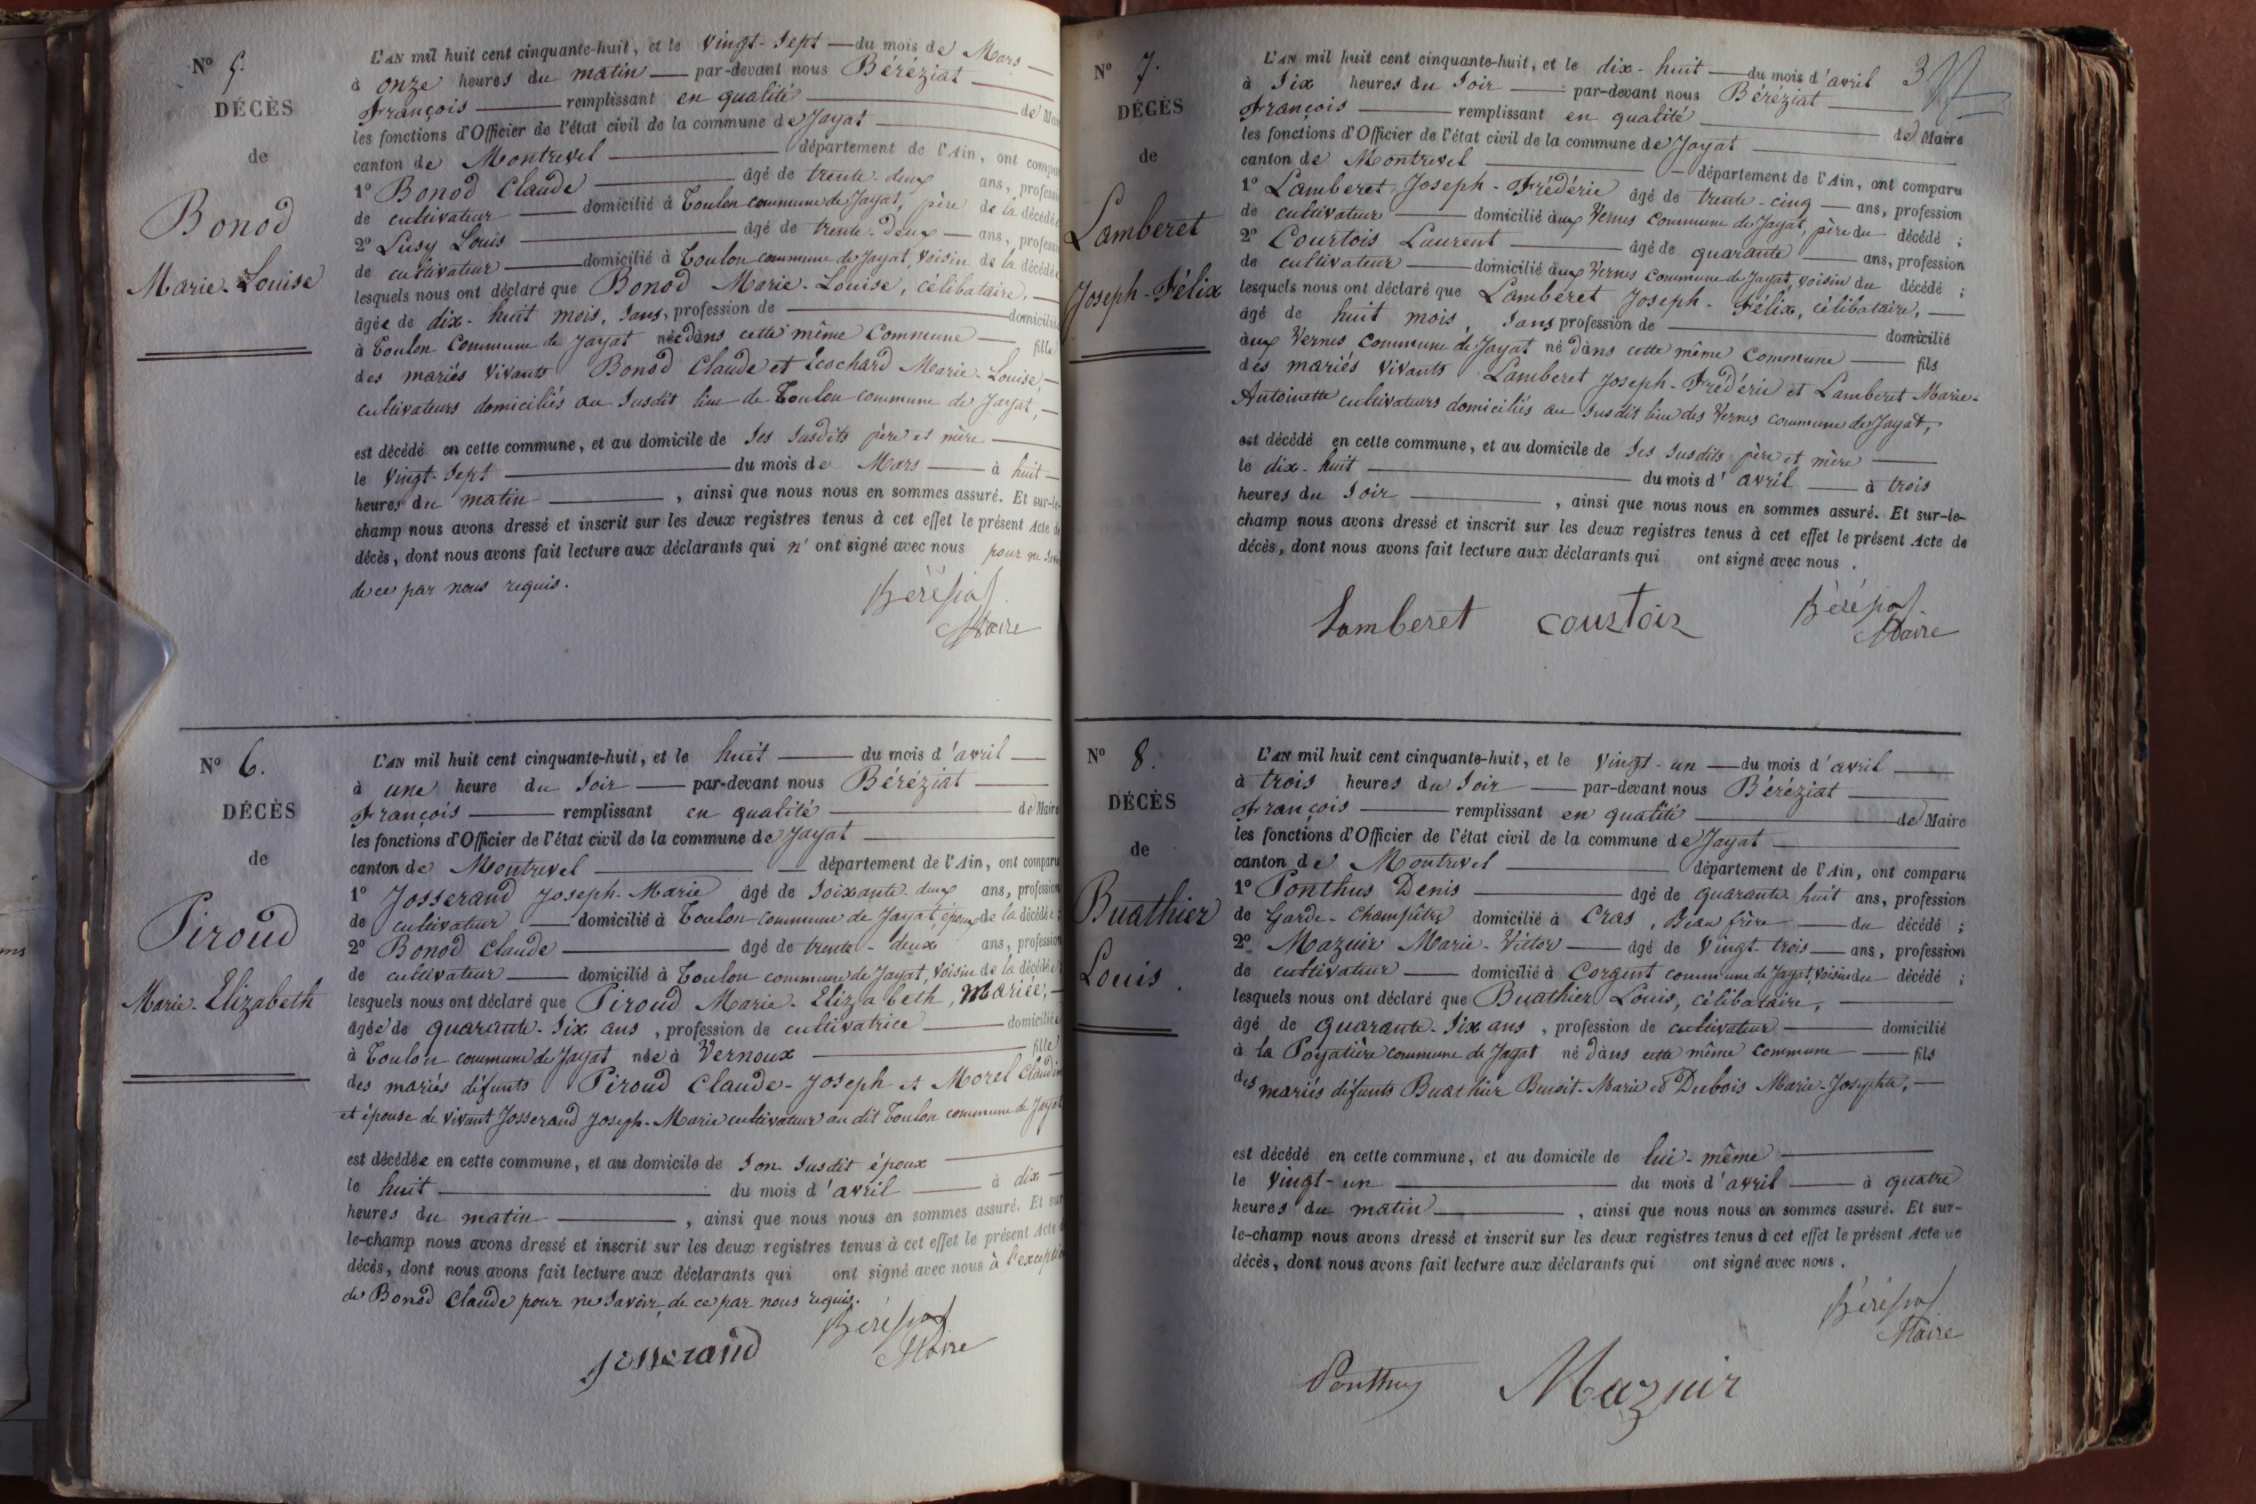 N° 5.
DÉCÈS
de
Bonod
Marie-Louise
L'AN mil huit cent cinquante-huit, et le vingt-sept du mois de Mars
à onze heures du matin par-devant nous Béréziat
François remplissant en qualité de
les fonctions d'Officier de l'état civil de la commune de Jayat
canton de Montrevel département de l'Ain, ont
1° Bonod Claude âgé de trente-deux ans,
de cultivateur domicilié à Toulon commune de Jayat, père de la
2° Lusy Louis âgé de trente-deux ans,
de cultivateur domicilié à Toulon commune de Jayat, voisin de la
lesquels nous ont déclaré que Bonod Marie-Louise, célibataire,
âgée de dix-huit mois, sans profession de
à Toulon Commune de Jayat née dans cette même Commune fille
des mariés vivants Bonod Claude et Ecochard Marie-Louise
cultivateurs domiciliés au susdit lieu de Toulon commune de Jayat,
est décédé en cette commune, et au domicile de ses susdits père et mère
le vingt-sept du mois de Mars à huit
heures du matin, ainsi que nous nous en sommes assuré. Et sur-le-
champ nous avons dressé et inscrit sur les deux registres tenus à cet effet le présent Acte de
décès, dont nous avons fait lecture aux déclarants qui n'ont signé avec nous pour ne
de ce par nous requis.
Béréziat
Maire
N° 6.
DÉCÈS
de
Piroud
Marie-Elizabeth
L'AN mil huit cent cinquante-huit, et le huit du mois d'avril
à une heure du soir par-devant nous Béréziat
François remplissant en qualité de Maire
les fonctions d'Officier de l'état civil de la commune de Jayat
canton de Montrevel département de l'Ain, ont comparu
1° Josserand Joseph-Marie âgé de soixante-deux ans, profession
de cultivateur domicilié à Toulon commune de Jayat, époux de la décédée;
2° Bonod Claude âgé de trente-deux ans, profession
de cultivateur domicilié à Toulon commune de Jayat, voisin de la décédée
lesquels nous ont déclaré que Piroud Marie-Elizabeth, Mariée,
âgée de quarante-six ans, profession de cultivatrice domiciliée
à Toulon commune de Jayat née à Vernoux fille
des mariés défunts Piroud Claude-Joseph et Morel
et épouse de vivant Josserand Joseph-Marie cultivateur au dit Toulon commune de Jayat
est décédée en cette commune, et au domicile de son susdit époux
le huit du mois d'avril à dix
heures du matin, ainsi que nous nous en sommes assuré. Et sur
le-champ nous avons dressé et inscrit sur les deux registres tenus à cet effet le présent Acte
décès, dont nous avons fait lecture aux déclarants qui ont signé avec nous à l'exception
de Bonod Claude pour ne savoir, de ce par nous requis.
Béréziat
Maire
Josserand
N° 7.
DÉCÈS
de
Lamberet
Joseph-Félix
L'AN mil huit cent cinquante-huit, et le dix-huit du mois d'avril
à six heures du soir par-devant nous Béréziat
François remplissant en qualité de Maire
les fonctions d'Officier de l'état civil de la commune de Jayat
canton de Montrevel département de l'Ain, ont comparu
1° Lamberet Joseph-Frédéric âgé de trente-cinq ans, profession
de cultivateur domicilié aux Vernes Commune de Jayat, père du décédé;
2° Courtois Laurent âgé de quarante ans, profession
de cultivateur domicilié aux Vernes Commune de Jayat, voisin du décédé;
lesquels nous ont déclaré que Lamberet Joseph-Félix, célibataire,
âgé de huit mois, sans profession de domicilié
aux Vernes Commune de Jayat né dans cette même Commune fils
des mariés vivants Lamberet Joseph-Frédéric et Lamberet Marie-
Antoinette cultivateurs domiciliés au susdit lieu des Vernes commune de Jayat,
est décédé en cette commune, et au domicile de ses susdits père et mère
le dix-huit du mois d'avril à trois
heures du soir, ainsi que nous nous en sommes assuré. Et sur-le-
champ nous avons dressé et inscrit sur les deux registres tenus à cet effet le présent Acte de
décès, dont nous avons fait lecture aux déclarants qui ont signé avec nous.
Lamberet Courtois Béréziat
Maire
N° 8.
DÉCÈS
de
Buathier
Louis.
L'AN mil huit cent cinquante-huit, et le vingt-un du mois d'avril
à trois heures du soir par-devant nous Béréziat
François remplissant en qualité de Maire
les fonctions d'Officier de l'état civil de la commune de Jayat
canton de Montrevel département de l'Ain, ont comparu
1° Ponthus Denis âgé de quarante-huit ans, profession
de Garde-Champêtre domicilié à Cras, Beau frère du décédé;
2° Mazuir Marie-Victor âgé de vingt-trois ans, profession
de cultivateur domicilié à Corgent commune de Jayat, voisin du décédé;
lesquels nous ont déclaré que Buathier Louis, célibataire,
âgé de quarante-six ans, profession de cultivateur domicilié
à la Poyatière commune de Jayat né dans cette même commune fils
des mariés défunts Buathier Benoit-Marie et Dubois Marie-Josephte,
est décédé en cette commune, et au domicile de lui-même
le vingt-un du mois d'avril à quatre
heures du matin, ainsi que nous nous en sommes assuré. Et sur-
le-champ nous avons dressé et inscrit sur les deux registres tenus à cet effet le présent Acte de
décès, dont nous avons fait lecture aux déclarants qui ont signé avec nous.
Béréziat
Maire
Ponthus Mazuir